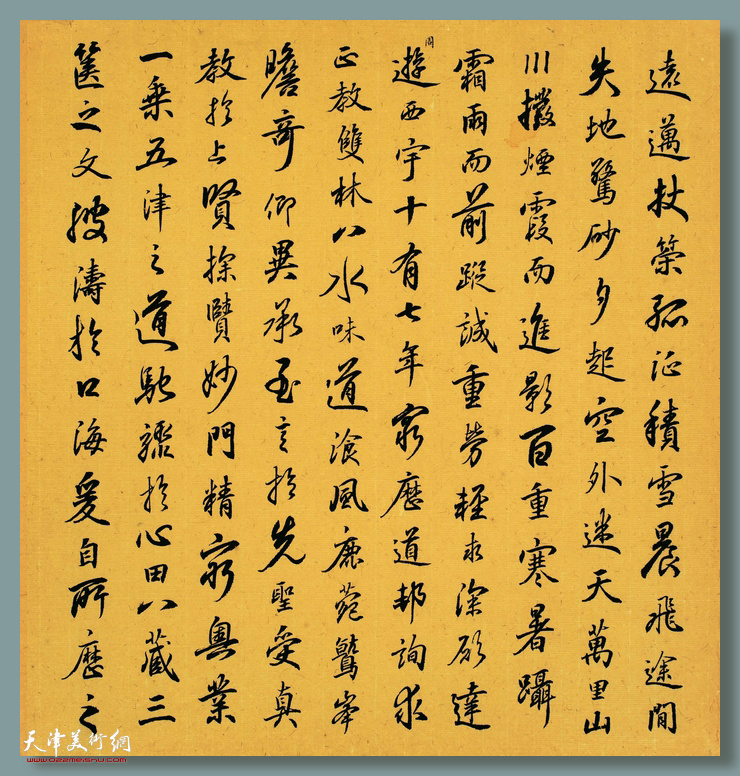 遠邁杖策孤征積雪晨飛途閒
失地驚砂夕起空外迷天萬里山
川撥煙霞而進影百重寒暑躡
霜雨而前蹤誠重勞輕求深願達
周
遊西宇十有七年窮歷道邦詢求
正教雙林八水味道湌風鹿菀鷲峯
瞻奇仰異承至言於先聖受真
教於上賢探賾妙門精窮奧業
一乘五津之道馳驟於心田八藏三
篋之文波濤於口海爰自所歷之
天津美術網
www.022meishu.com